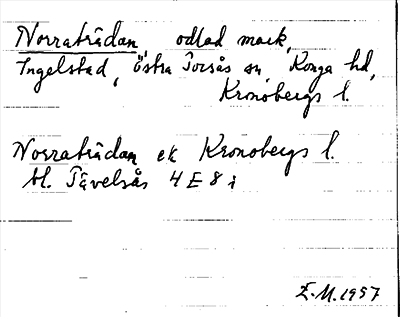 Norraträdan, odlad mark,
Ingelstad, Östra Torsås sn, Konga hd,
Kronobergs l.
Norraträdan ek Kronobergs l.
bl. Tävelsås 4 E 8 i
E.M. 1957